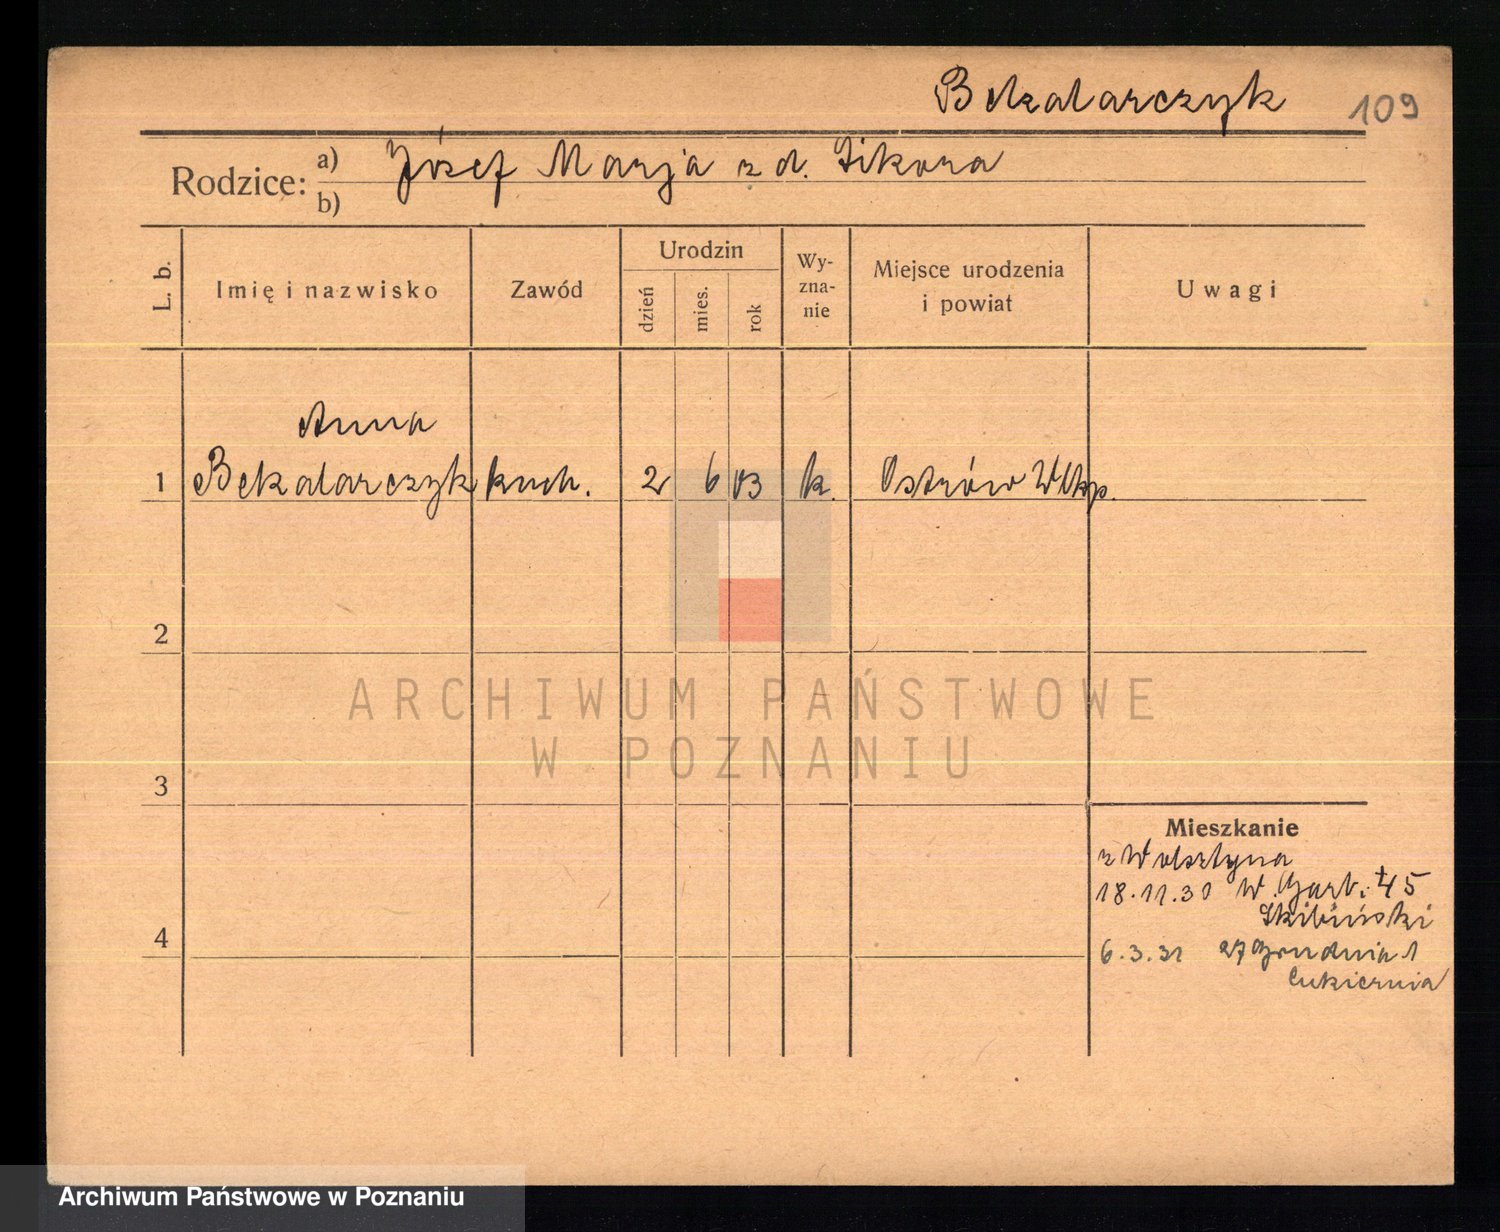 Bekalarczyk 109
Rodzice: a) Józef Marja z d. Sikora
b)
L. b.
Imię i nazwisko
Zawód
Urodzin
dzień
mies.
rok
Wy-
zna-
nie
Miejsce urodzenia
i powiat
Uwagi
Anna
1 Bekalarczyk kuch. 2 6 03 k. Ostrów Wlkp.
2
3
4
ARCHIWUM PAŃSTWOWE
W POZNANIU
Mieszkanie
z Wolsztyna
18.11.30 W. Garb. 45
Skibiński
6.3.31 27 Grudnia 1
Cukiernia
Archiwum Państwowe w Poznaniu